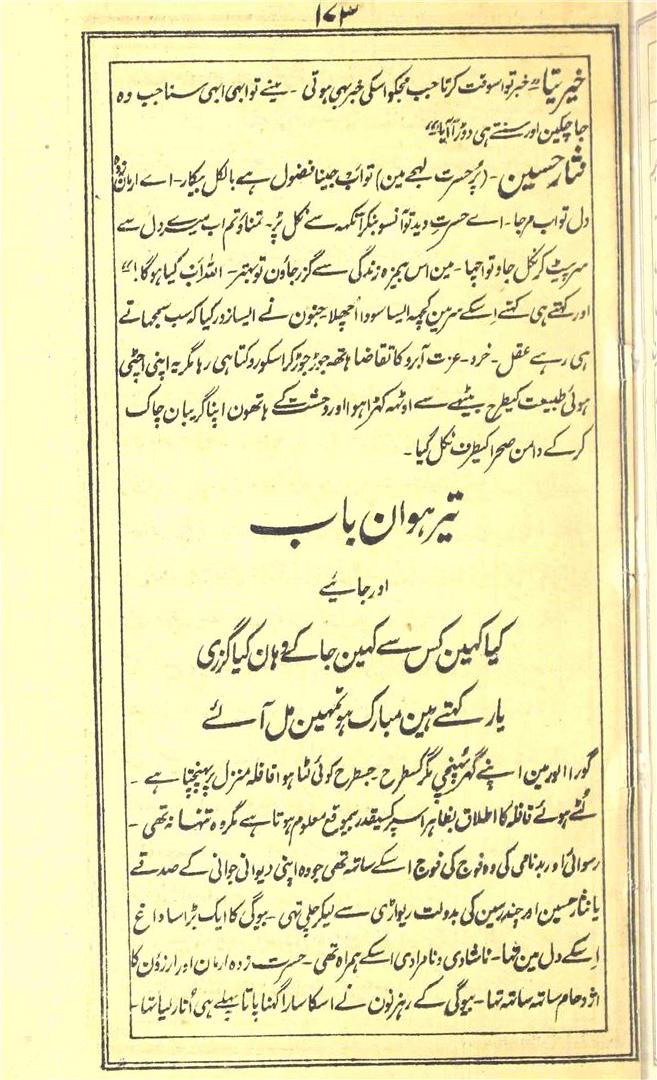 ۱۷۳
خیریتیا "خبر تو اسوقت کرتا جب مجکو اسکی خبر بہی ہوتی - مینے تو ابہی ابہی سنا جب وہ
جاچکین اور سنتے ہی دوڑا آیا"
نثار حسین - (پُر حسرت لہجے مین) تو اب جینا فضول ہے بالکل بیکار - اے ارمان زدہ
دل تو اب مرجا - اے حسرت دید تو آنسو بنکر آنکہہ سے نکل پڑ - تمناؤ تم اب میرے دل سے
سر پیٹ کر نکل جاو تو اچہا - مین اس بیمزہ زندگی سے گزر جاؤن تو بہتر - اللہ اب کیا ہوگا!"
اور کہتے ہی کہتے اِسکے سر مین کچہہ ایسا سودا اُچھلا جنون نے ایسا زور کیا کہ سب سمجھاتے
ہی رہے عقل - خرد - عزت آبرو کا تقاضا ہاتھ جوڑ جوڑ کر اسکو روکتا ہی رہا مگر یہ اپنی اچٹی
ہوئی طبیعت کیطرح بیٹھے سے اوٹھہ کہڑا ہوا اور وحشت کے ہاتھون اپنا گریبان چاک
کرکے دامن صحرا کیطرف نکل گیا -
تیرہوان باب
اور جایئے
کیا کہین کس سے کہین جاکے وہان کیا گزری
یار کہتے ہین مبارک ہو تمہین مل آئے
گورا الور مین اپنے گھر پہنچی مگر کسطرح - جسطرح کوئی لٹا ہوا قافلہ منزل پر پہنچتا ہے -
لُٹے ہوئے قافلہ کا اطلاق بظاہر اسپر کسیقدر بیموقع معلوم ہوتا ہے مگر وہ تنہا نہ تھی -
رسوائی اور بدنامی کی وہ فوج کی فوج اسکے ساتھ تھی جو وہ اپنی دیوانی جوانی کے صدقے
یا نثار حسین اور چندر سین کی بدولت ریواڑی سے لیکر چلی تہی - بیوگی کا ایک بڑا سا داغ
اِسکے دل مین تہا - ناشادی و نامرادی اسکے ہمراہ تھی - حسرت زدہ ارمان اور ارزؤن کا
اژدحام ساتھ ساتھ تہا - بیوگی کے رہزنون نے اسکا سارا گہنا پاتا پہلے ہی اُتار لیا تہا -